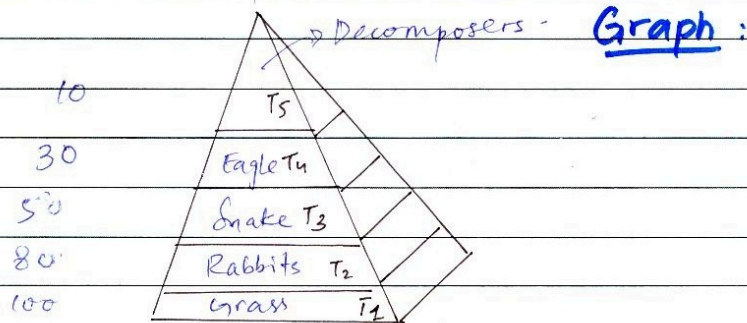 Decomposers - Graph :
10 T5
30 Eagle T4
50 Snake T3
80 Rabbits T2
100 Grass T1